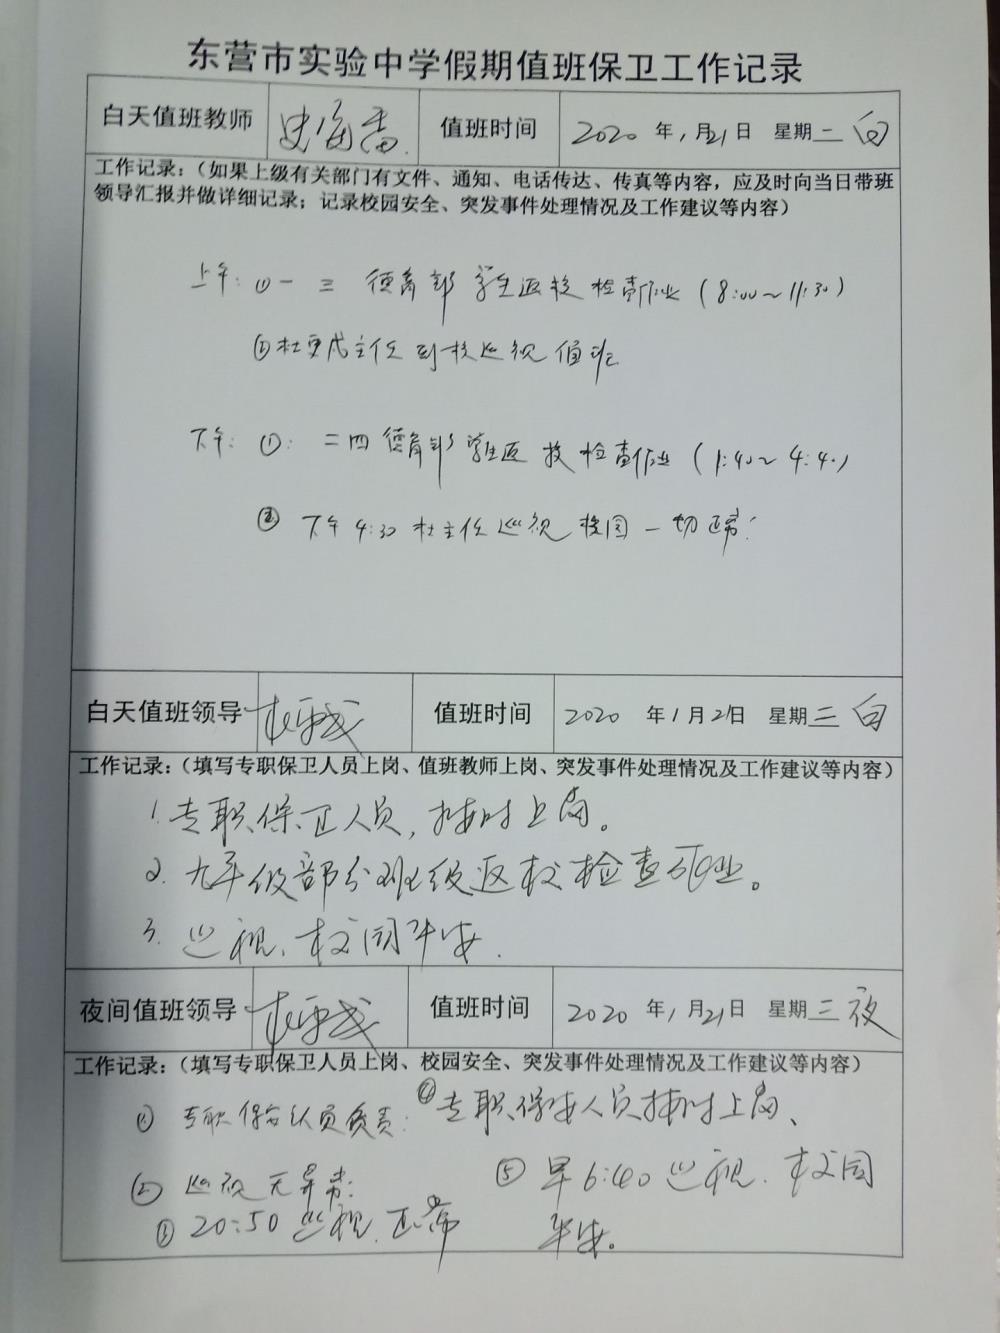 东营市实验中学假期值班保卫工作记录
白天值班教师 史海香 值班时间 2020 年 1 月 21 日 星期 二 白
工作记录：（如果上级有关部门有文件、通知、电话传达、传真等内容，应及时向当日带班
领导汇报并做详细记录；记录校园安全、突发事件处理情况及工作建议等内容）
上午：① 一 三 德育部 学生返校 检查作业（8:00～11:30）
② 杜 主任 到校巡视 值班
下午：①： 二四 德育部 学生返 校检查作业（1:40～4:40）
② 下午 4:30 杜主任 巡视 校园 一切正常！
白天值班领导 值班时间 2020 年 1 月 21 日 星期 三 白
工作记录：（填写专职保卫人员上岗、值班教师上岗、突发事件处理情况及工作建议等内容）
1. 专职保卫人员，按时上岗。
2. 九年级部分班级返校检查作业。
3. 巡视、校园平安.
夜间值班领导 值班时间 2020 年 1 月 21 日 星期 三 夜
工作记录：（填写专职保卫人员上岗、校园安全、突发事件处理情况及工作建议等内容）
① 专职保安人员负责.
② 巡视无异常.
③ 20:50 巡视.正常
④ 专职保安人员按时上岗、
⑤ 早6:40 巡视.校园
平安。